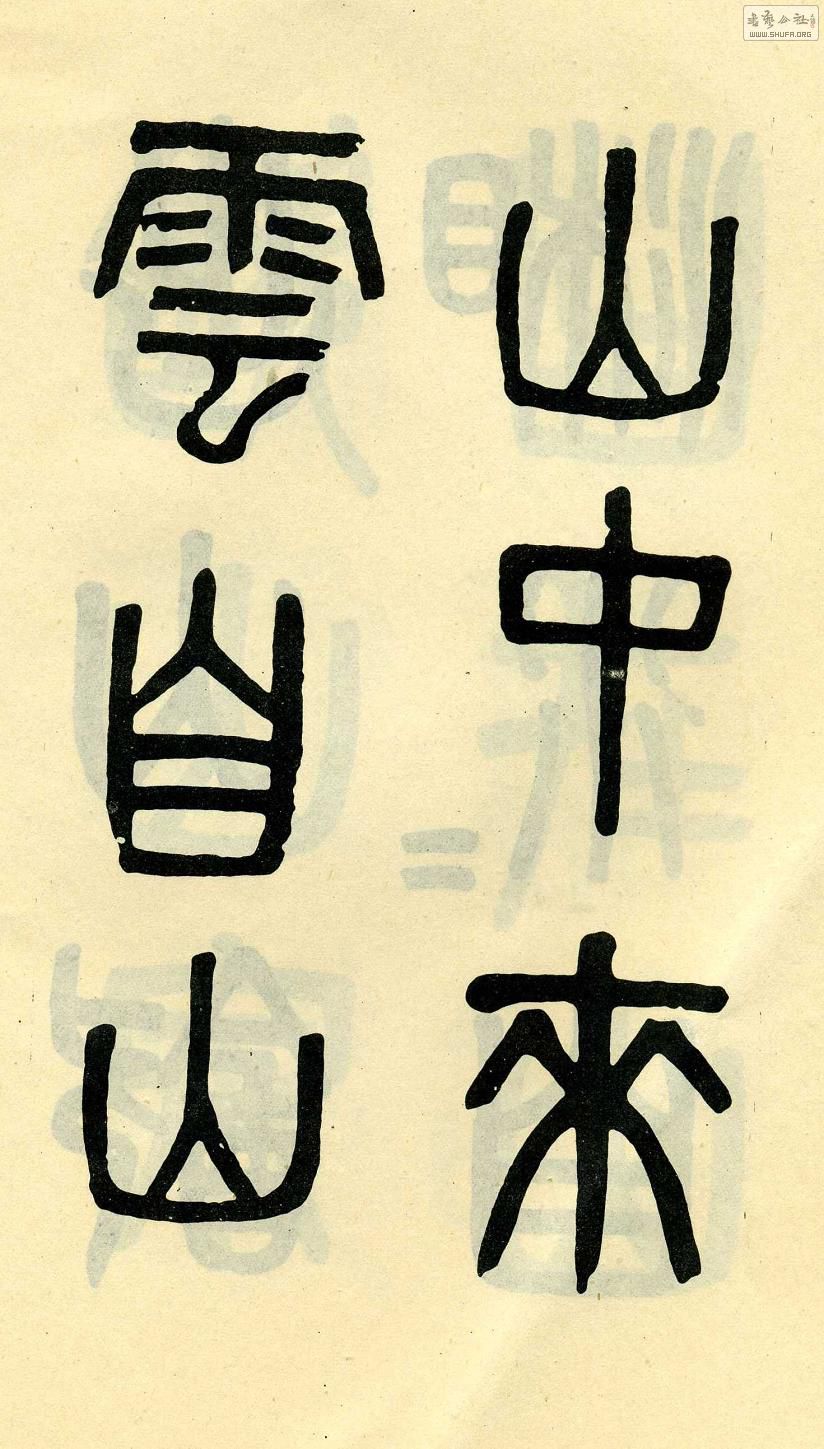 山中來
雲自山
書藝公社
WWW.SHUFA.ORG